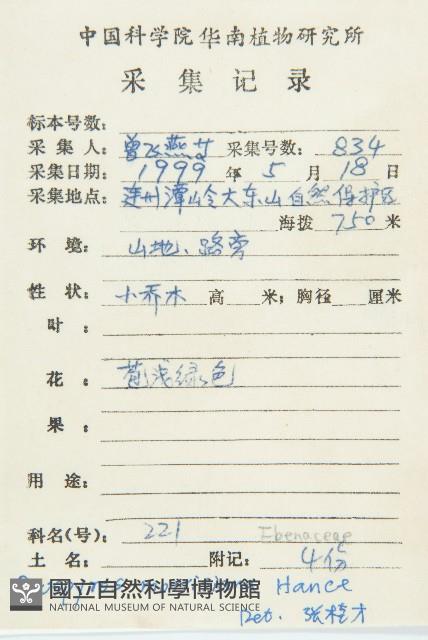 中国科学院华南植物研究所
采集记录
标本号数:
采集人: 曾飞燕 采集号数: 834
采集日期: 1999 年 5 月 18 日
采集地点: 连州潭岭大东山自然保护区
海拨 750 米
环境: 山地、路旁
性状: 小乔木 高 米; 胸径 厘米
叶:
花: 浅绿色
果:
用途:
科名(号): 221 Ebenaceae
土名: 附记: 4份
Hance
國立自然科學博物館
NATIONAL MUSEUM OF NATURAL SCIENCE
Det. 张桂才